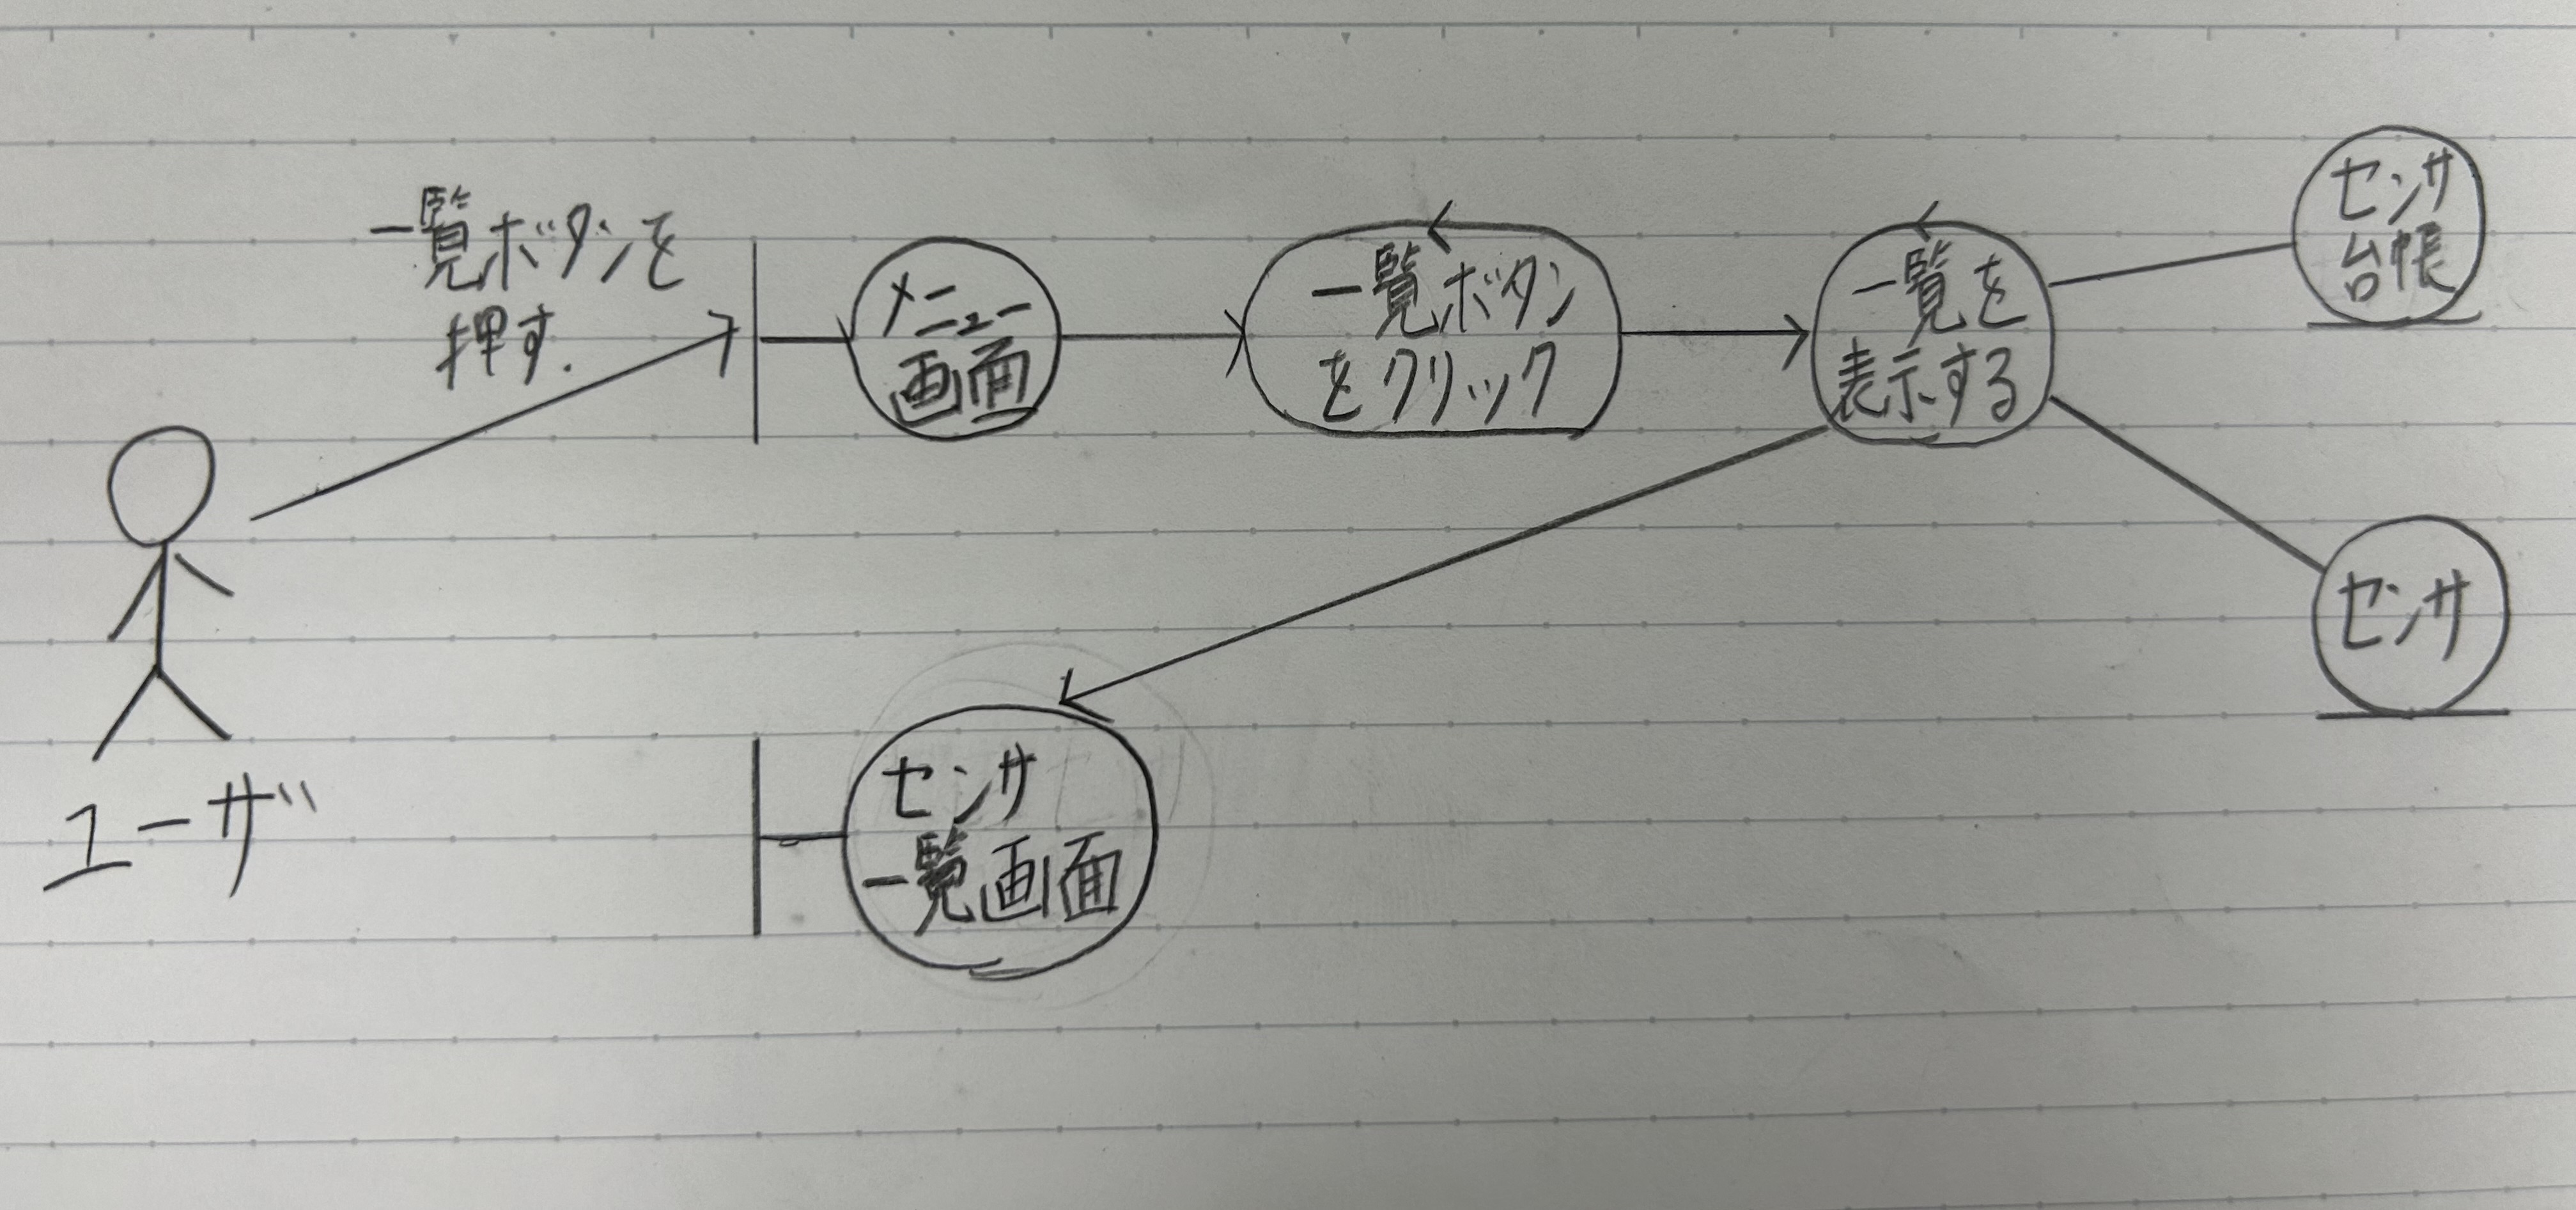 一覧ボタンを
押す.
メニュー
画面
一覧ボタン
をクリック
一覧を
表示する
センサ
台帳
センサ
ユーザ
センサ
一覧画面